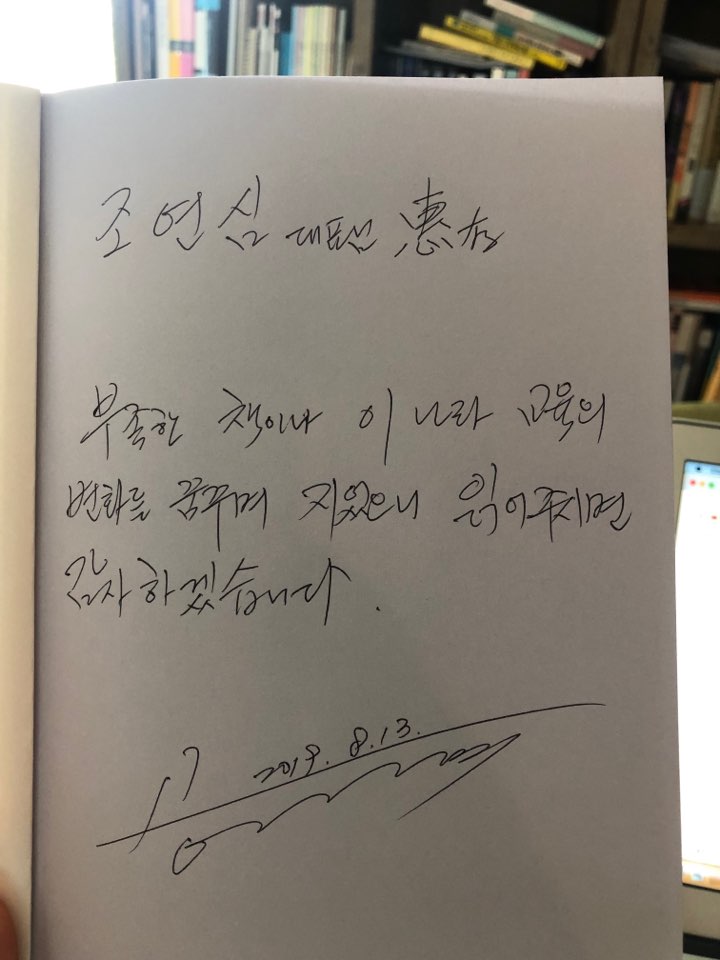 조연심 대표님 惠存
부족한 책이나 이 나라 교육의
변화를 꿈꾸며 지었으니 읽어주시면
감사하겠습니다.
2019. 8.13.